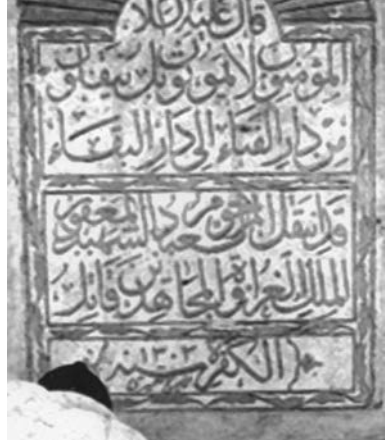 قال عليه السلام
المؤمنون لا يموتون بل ينقلون
من دار الفناء الى دار البقاء
قد انتقل المرحوم المغفور السعيد الشهيد
الغزاة والمجاهدين قاتل
الكفرة سنة ١٣٠٢